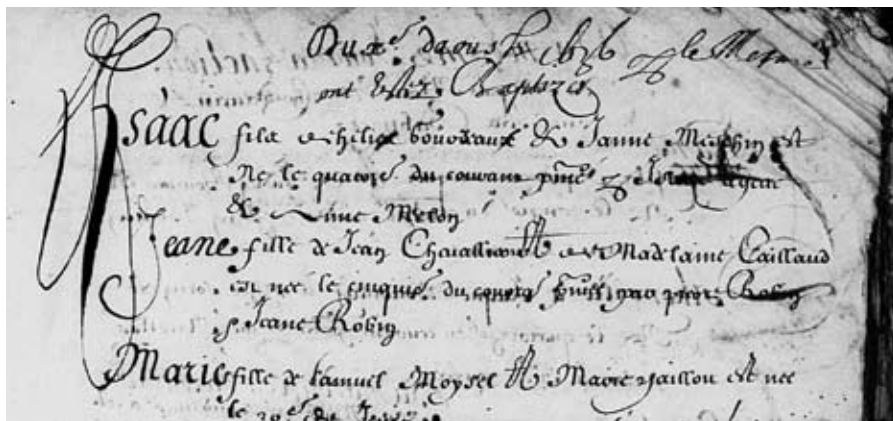 Du xe d'aoust 1676 le Mesme
ont estez Baptizez
Isaac filz de helie bouveaux & Janne Meschin est
Né le quatore du courant
& Anne Melon
Jeane fille de Jean Chavallier & Madelaine Caillaud
est née le cinquie du courant par pierre Robin
& Jeane Robin
Marie fille de Samuel Moysel & Marie Jaillou est née
le 28e de